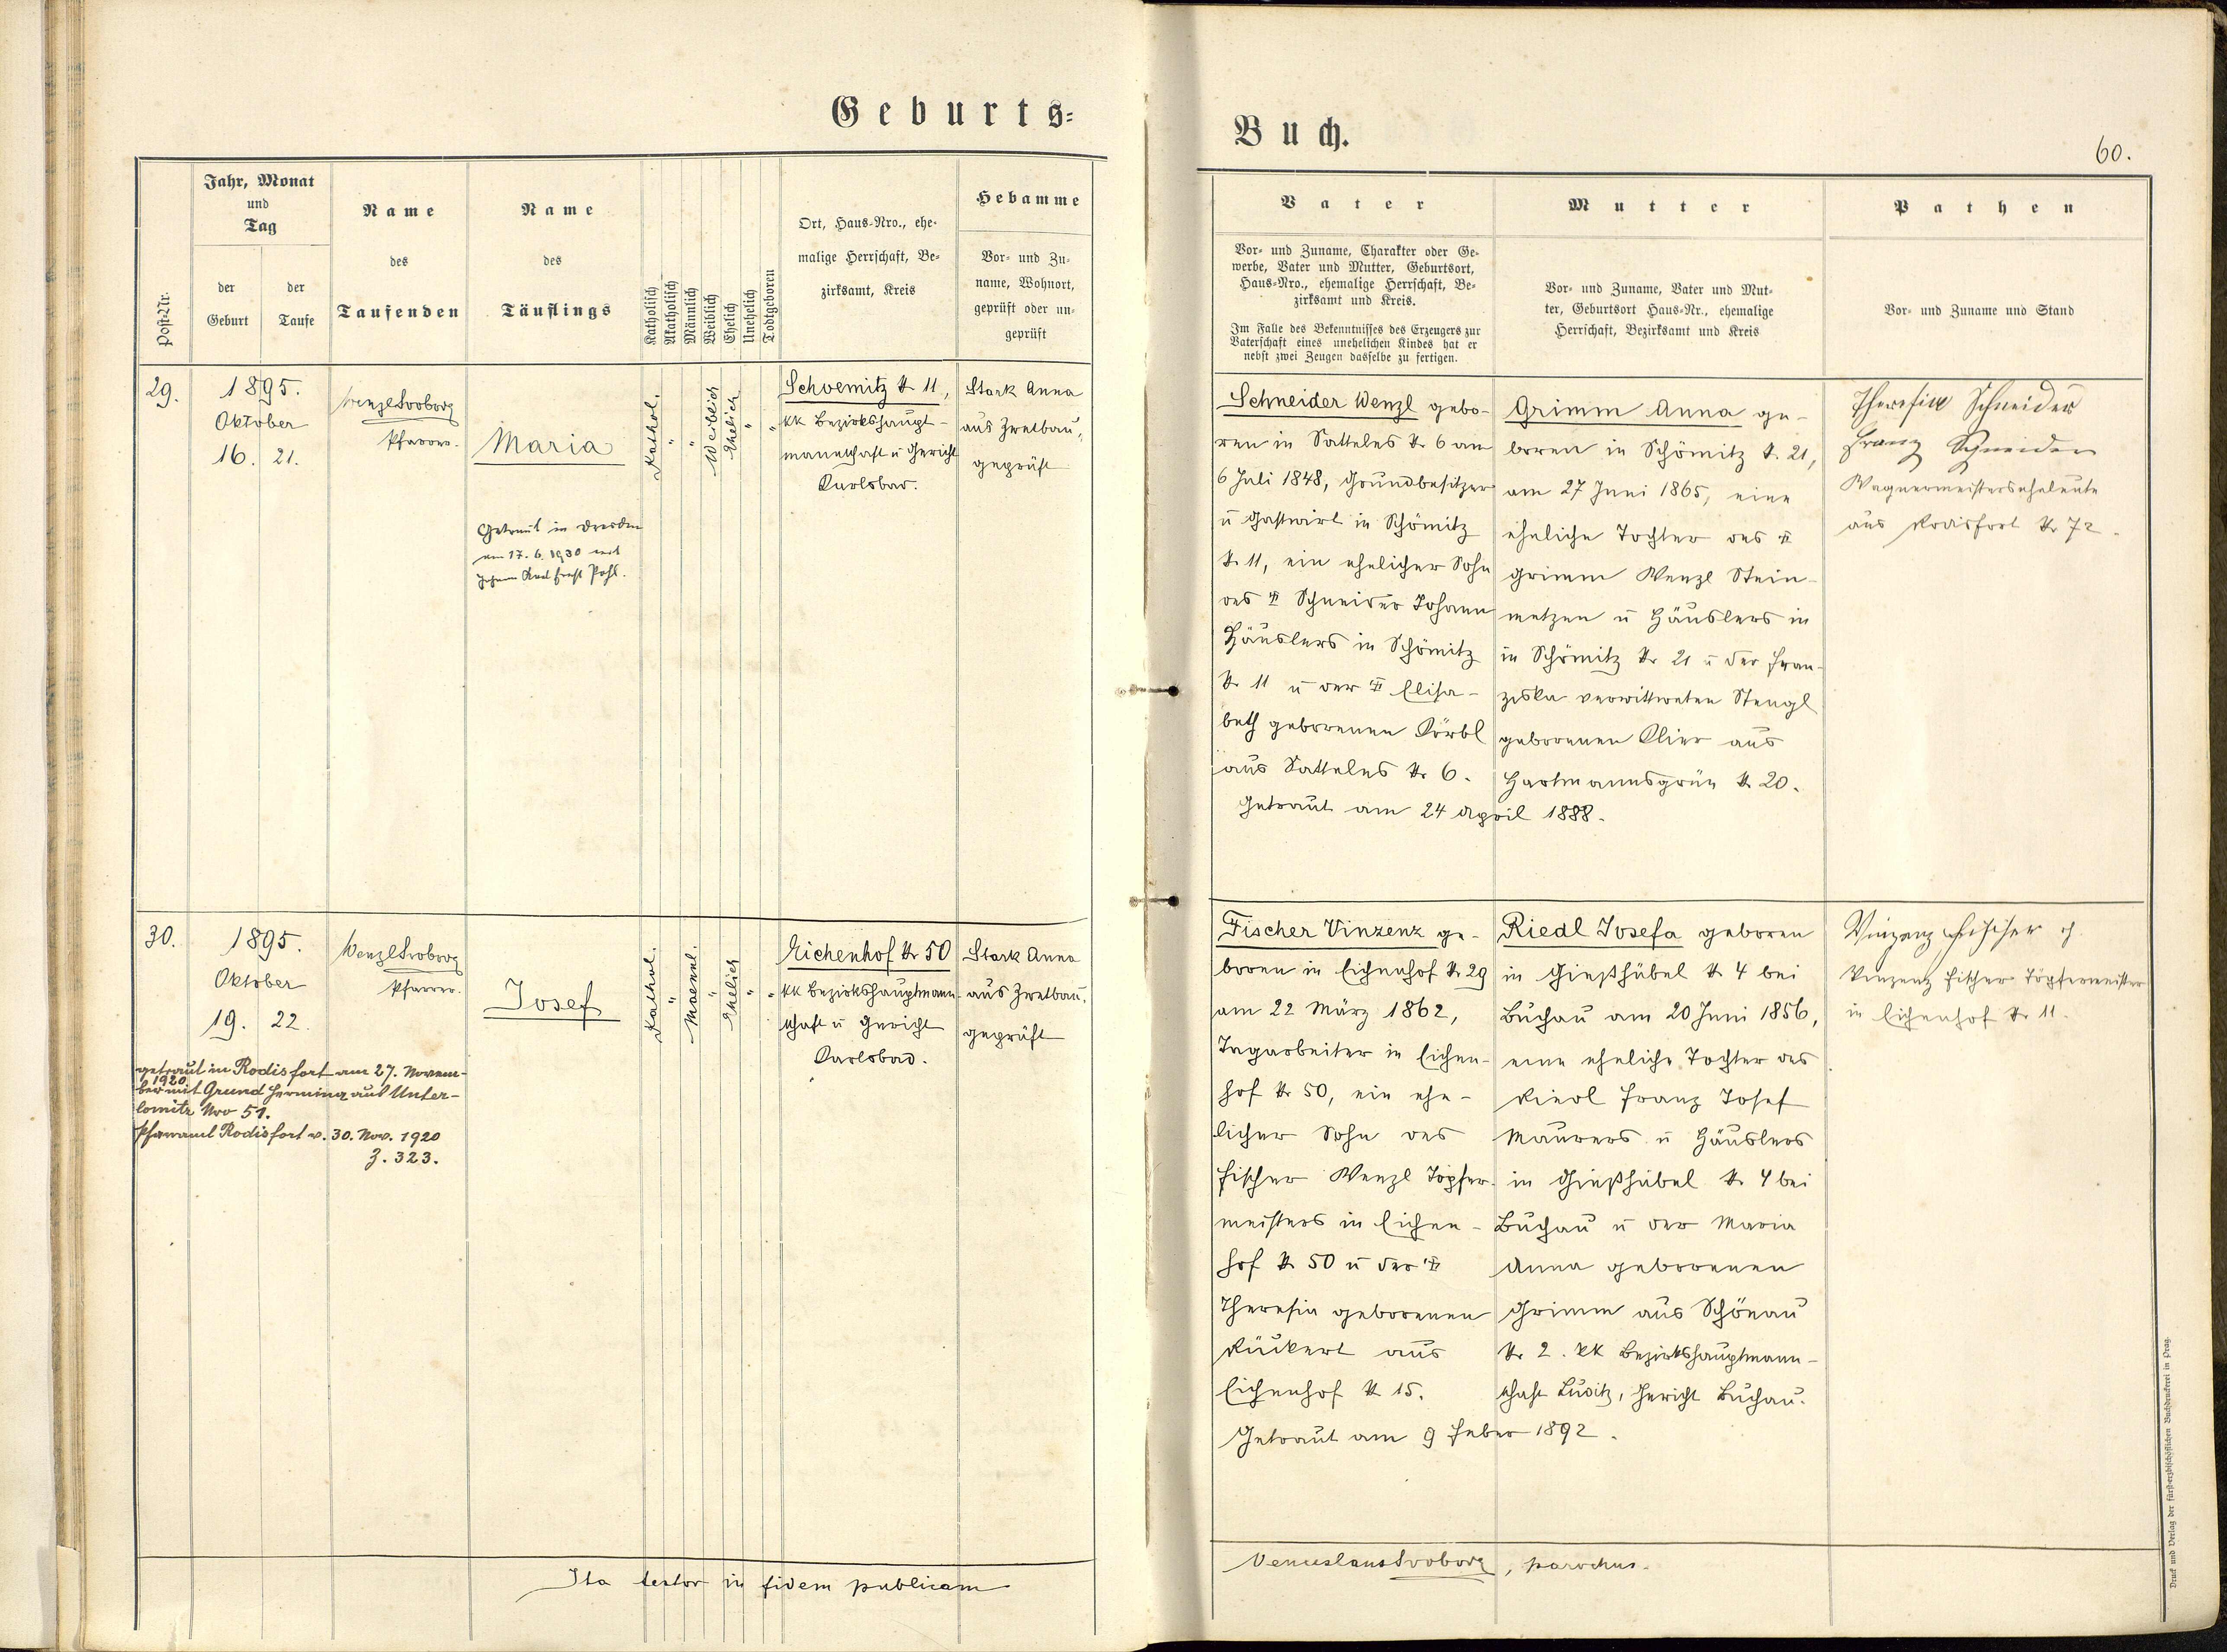 Geburts=
Buch.
60.
Post-Nr.
Jahr, Monat
und
Tag
der
Geburt
der
Taufe
Name
des
Taufenden
Name
des
Täuflings
Katholisch
Akatholisch
Männlich
Weiblich
Ehelich
Unehelich
Todtgeboren
Ort, Haus-Nro., ehe-
malige Herrschaft, Be-
zirksamt, Kreis
Hebamme
Vor- und Zu-
name, Wohnort,
geprüft oder un-
geprüft
Vater
Vor- und Zuname, Charakter oder Ge-
werbe, Vater und Mutter, Geburtsort,
Haus-Nro., ehemalige Herrschaft, Be-
zirksamt und Kreis.
Im Falle des Bekenntnisses des Erzeugers zur
Vaterschaft eines unehelichen Kindes hat er
nebst zwei Zeugen dasselbe zu fertigen.
Mutter
Vor- und Zuname, Vater und Mut-
ter, Geburtsort Haus-Nr., ehemalige
Herrschaft, Bezirksamt und Kreis
Pathen
Vor- und Zuname und Stand
29.
1895.
Oktober
16. 21.
Wenzl Svoboda
Pfarrer.
Maria
Getraut in Dresden
am 17. 6. 1930 mit
Pohl.
Kathol.
"
"
Weiblich
Ehelich
"
"
Schoemitz N 11,
kk Bezirkshaupt-
mannschaft u Gericht
Karlsbad.
Stark Anna
aus Zwetbau,
geprüft
Schneider Wenzl gebo-
ren in Satteles N 6 am
6 Juli 1848, Grundbesitzer
u Gastwirt in Schömitz
N 11, ein ehelicher Sohn
des Schneider Johann
Häuslers in Schömitz
N 11 u der Elisa-
beth geborenen Körbl
aus Satteles N 6.
Getraut am 24 April 1888.
Grimm Anna ge-
boren in Schömitz N. 21,
am 27 Juni 1865, eine
eheliche Tochter des
Grimm Wenzl Stein-
metzen u Häuslers in
in Schömitz N 21 u der Fran-
ziska verwittweten Stengl
geborenen Klier aus
Hartmannsgrün N 20.
Theresia Schneider
Franz Schneider
Wagnermeisterseheleute
aus Rodisfort N 72.
30.
1895.
Oktober
19. 22.
getraut in Rodisfort am 27. Novem-
1920
ber mit Grund Hermina aus Unter-
lomitz Nro 51.
Pfarramt Rodisfort v. 30. Nov. 1920
Z. 323.
Wenzl Svoboda
Pfarrer.
Josef
Kathol.
"
Maennl.
"
Ehelich
"
"
Eichenhof N 50
kk Bezirkshauptmann-
schaft u Gericht
Karlsbad.
Stark Anna
aus Zwetbau,
geprüft
Fischer Vinzenz ge-
boren in Eichenhof N 29
am 22 März 1862,
Tagarbeiter in Eichen-
hof N 50, ein ehe-
licher Sohn des
Fischer Wenzl Töpfer-
meisters in Eichen-
hof N 50 u der
Theresia geborenen
Rückert aus
Eichenhof N 15.
Getraut am 9 Feber 1892.
Riedl Josefa geboren
in Gießhübel N 4 bei
Buchau am 20 Juni 1856,
eine eheliche Tochter des
Riedl Franz Josef
Maurers u Häuslers
in Gießhübel N. 4 bei
Buchau u der Maria
Anna geborenen
Grimm aus Schönau
N 2. kk Bezirkshauptmann-
schaft Luditz, Gericht Buchau.
Vinzenz Fischer
Vinzenz Fischer Töpfermeister
in Eichenhof N 11.
Ita testor in fidem publicam
Venceslaus Svoboda, parochus.
Druck und Verlag der fürsterzbischöflichen Buchdruckerei in Prag.